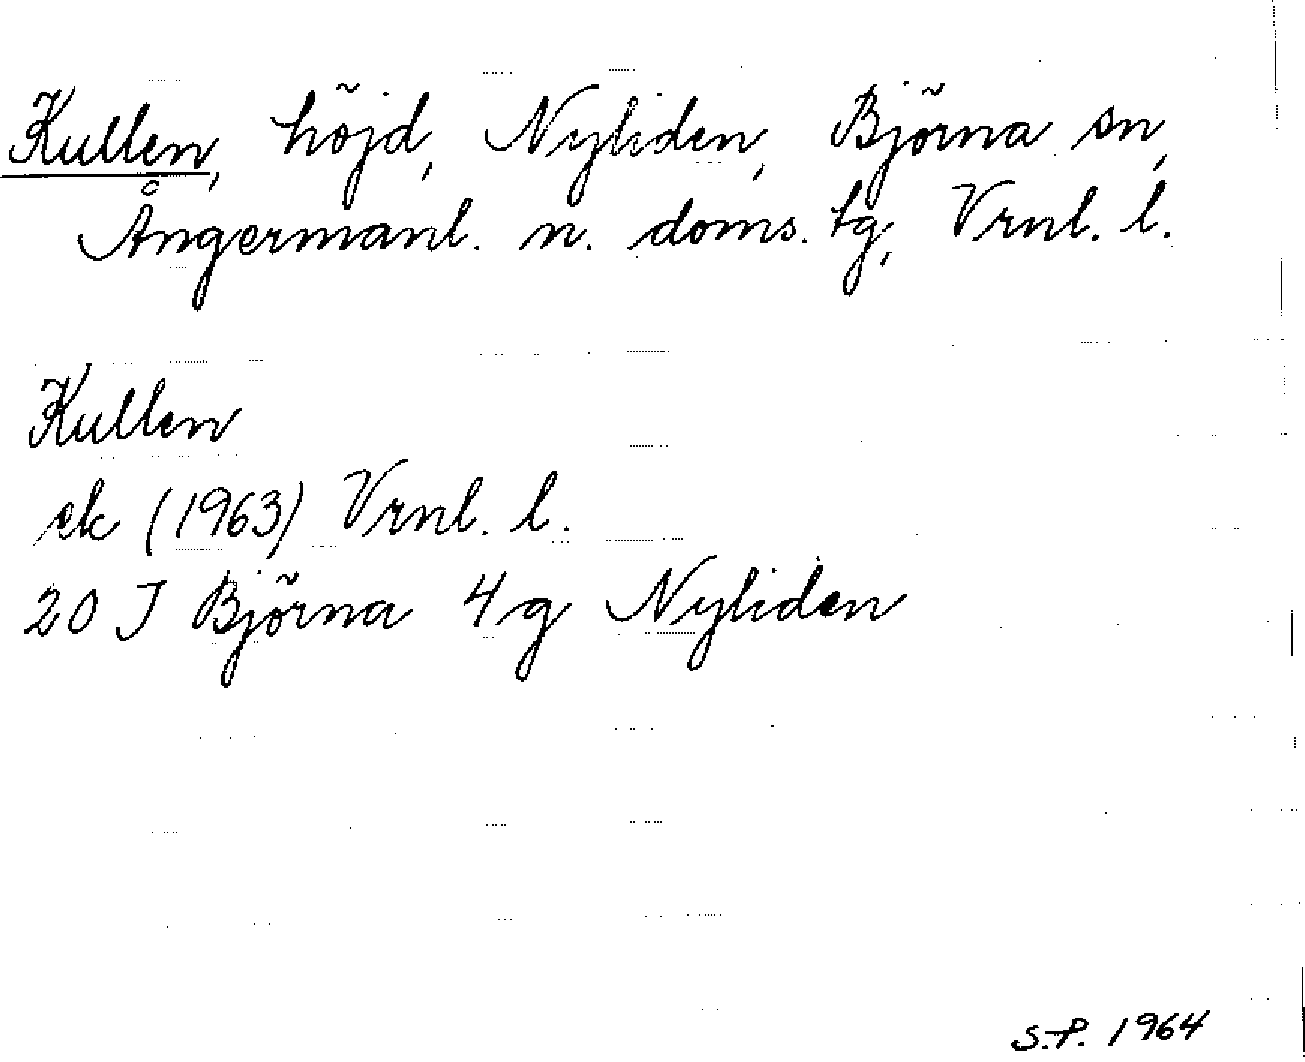 Kullen, höjd, Nyliden, Björna sn,
Ångermanl. n. doms. tg, Vrnl. l.
Kullen
ek (1963) Vrnl. l.
20 J Björna 4g Nyliden
S.P. 1964